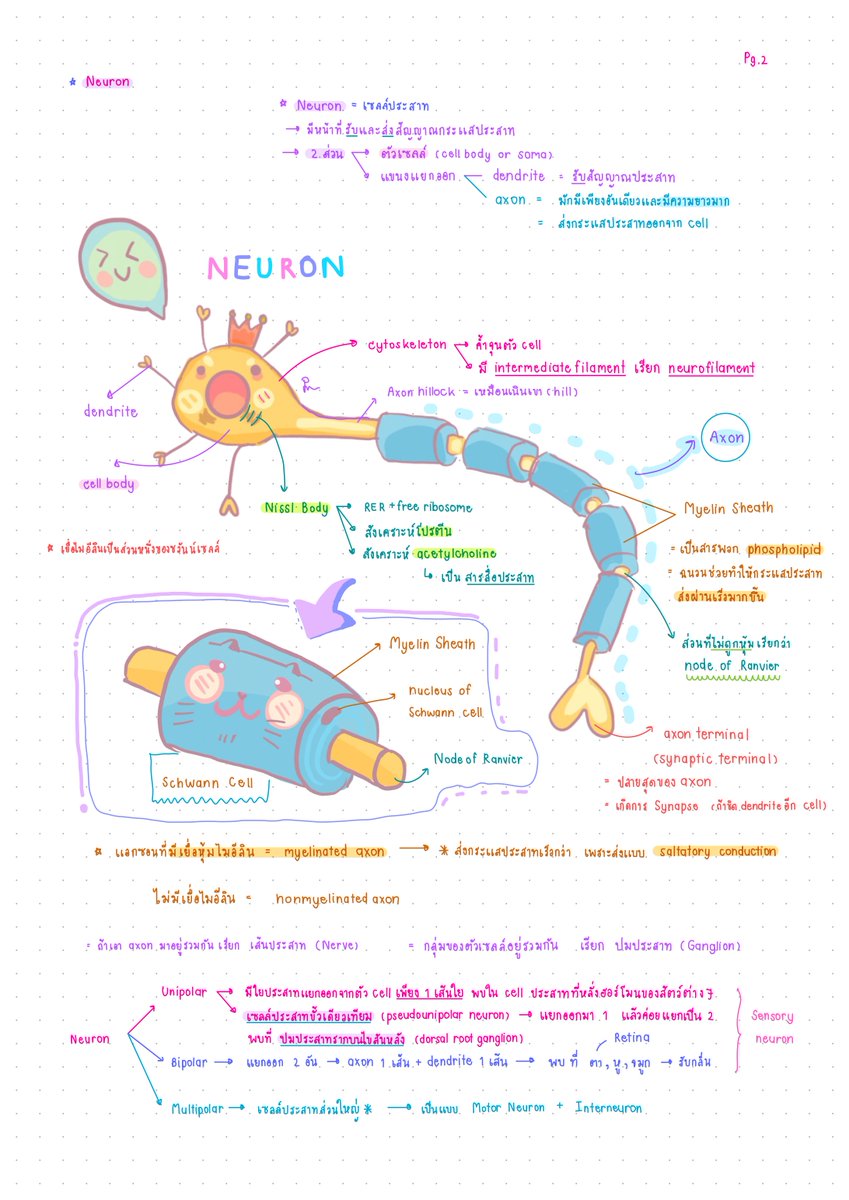 Pg.2
* Neuron
* Neuron = เซลล์ประสาท
→ มีหน้าที่รับและส่งสัญญาณกระแสประสาท
→ 2 ส่วน ตัวเซลล์ (cell body or soma)
แขนงแยกออก dendrite = รับสัญญาณประสาท
axon = มักมีเพียงอันเดียวและมีความยาวมาก
= ส่งกระแสประสาทออกจาก cell
NEURON
cytoskeleton → ค้ำจุนตัว cell
มี intermediate filament เรียก neurofilament
Axon hillock = เหมือนเนินเขา (hill)
dendrite
Axon
cell body
Nissl Body → RER + free ribosome
สังเคราะห์โปรตีน
สังเคราะห์ acetylcholine
↳ เป็น สารสื่อประสาท
Myelin Sheath
= เป็นสารพวก phospholipid
= ฉนวนช่วยทำให้กระแสประสาท
ส่งผ่านเร็วมากขึ้น
* เยื่อไมอีลินเป็นส่วนหนึ่งของชวันน์เซลล์
ส่วนที่ไม่ถูกหุ้ม เรียกว่า
node of Ranvier
Myelin Sheath
nucleus of
Schwann cell
Node of Ranvier
Schwann Cell
axon terminal
(synaptic terminal)
= ปลายสุดของ axon
= เกิดการ Synapse (ถ้าชิด dendrite อีก cell)
* แอกซอนที่มีเยื่อหุ้มไมอีลิน = myelinated axon → * ส่งกระแสประสาทเร็วกว่า เพราะส่งแบบ saltatory conduction
ไม่มีเยื่อไมอีลิน = nonmyelinated axon
= ถ้าเอา axon มาอยู่รวมกัน เรียก เส้นประสาท (Nerve) = กลุ่มของตัวเซลล์อยู่รวมกัน เรียก ปมประสาท (Ganglion)
Neuron
Unipolar → มีใยประสาทแยกออกจากตัว cell เพียง 1 เส้นใย พบใน cell ประสาทที่หลั่งฮอร์โมนของสัตว์ต่าง ๆ
เซลล์ประสาทขั้วเดียวเทียม (pseudounipolar neuron) → แยกออกมา 1 แล้วค่อยแยกเป็น 2
พบที่ ปมประสาทรากบนไขสันหลัง (dorsal root ganglion)
Sensory
neuron
Retina
Bipolar → แยกออก 2 อัน → axon 1 เส้น + dendrite 1 เส้น → พบ ที่ ตา, หู, จมูก → รับกลิ่น
Multipolar → เซลล์ประสาทส่วนใหญ่ * → เป็นแบบ Motor Neuron + Interneuron